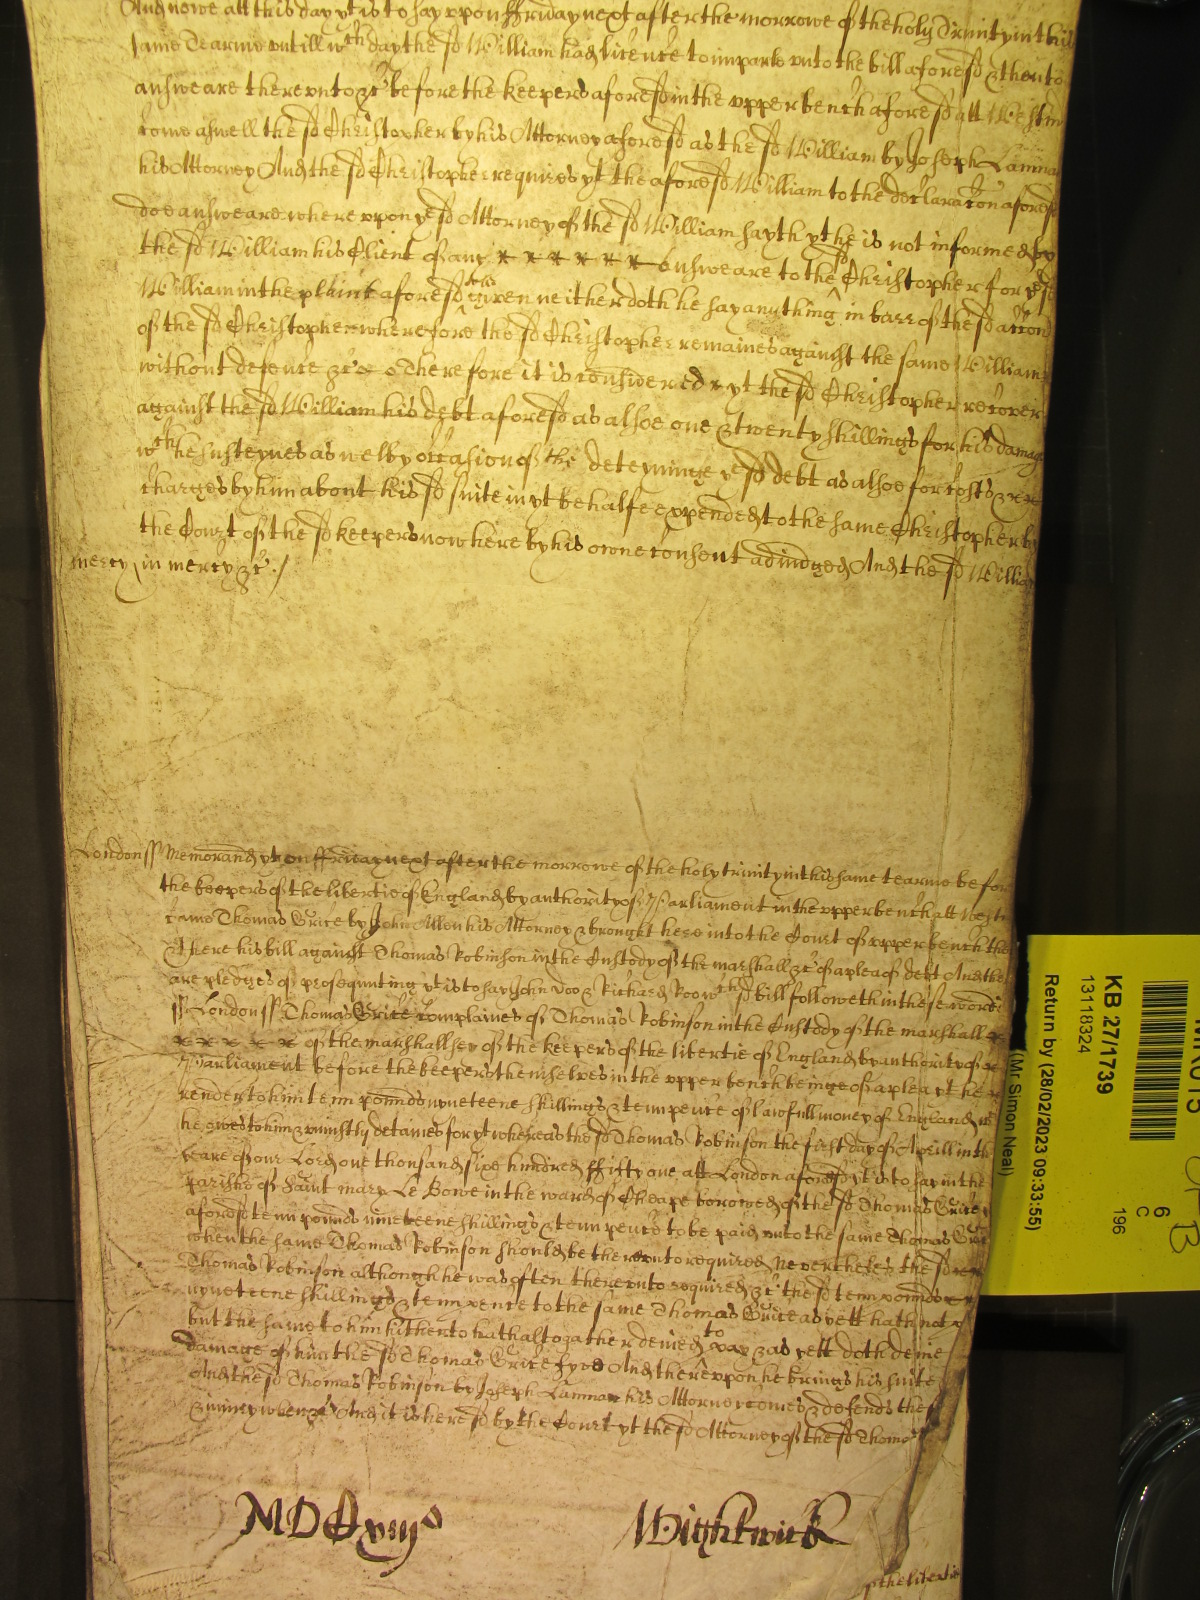 And nowe att this day yt is to say uppon ffriday next after the morrowe of the holy Trinity in this
same tearme untill wch day the sd William had licence to imparle unto the bill aforesd & then to
answeare thereunto &c before the keepers aforesd in the upper bench aforesd att Westm
come aswell the sd Christopher by his Attorney aforesd as the sd William by Joseph Lamma
his Attorney And the sd Christopher requires yt the aforesd William to the declaracon aforesd
doe answeare whereuppon ye sd Attorney of the sd William sayth yt he is not informed by
the sd William his Client of any answeare to the sd Christopher for ye sd
William in the plaint aforesd to be given neither doth he say anything in barr of the sd accon
of the sd Christopher wherefore the sd Christopher remaines against the same William
without defence &c Therefore it is considered yt the sd Christopher recover
against the sd William his debt aforesd as alsoe one & twenty shillings for his damag
wch he susteynes as well by occasion of the deteyninge ye sd debt as alsoe for costs &
charges by him about his sd suite in yt behalfe expended to the same Christopher by
the Court of the sd keepers now here by his owne consent adiudged And the sd Willia
mercy in mercy &c./
London ss Memorand yt on ffriday next after the morrowe of the holy trinity in this same tearme befor
the keepers of the libertie of England by authority of Parliament in the upper bench att Westm
came Thomas Grice by John Allen his Attorney & brought here into the Court of upper bench the
there his bill against Thomas Robinson in the Custody of the marshall &c of a plea of debt And the
are pledges of prosequuting yt is to say John Doo & Richard Roo wch sd bill followeth in these words
ss London ss Thomas Grice complaines of Thomas Robinson in the Custody of the marshall
of the marshallsey of the keepers of the libertie of England by authority of
Parliament before the keepers themselves in the upper bench beinge of a plea yt he
render to him tenn pounds nyneteene shillings & tenn pence of lawfull money of England wch
he owes to him & uniustly detaines for yt whereas the sd Thomas Robinson the first day of Aprill in the
yeare of our Lord one thousand sixe hundred ffifty one att London aforesd yt is to say in the
parish of Saint mary Le Bowe in the ward of Cheape borrowed of the sd Thomas Grice
aforesd tenn pounds nineteene shillings & tenn pence to be paid unto the same Thomas Grice
when the same Thomas Robinson should be thereunto required Neverthelesse the sd
Thomas Robinson although he was often thereunto required &c the sd tenn pounds
nyneteene shillings & tenn pence to the same Thomas Grice as yett hath not
but the same to him hitherto hath altogather denied to pay & as yett doth denie
damage of him the sd Thomas Grice And thereuppon he brings his suite
And the sd Thomas Robinson by Joseph Lamman his Attorney comes & defends the
& iniury when &c And it is here sd by the Court yt the sd Attorney of the sd Thomas
MDCxviijo Wightwick
p the libertie
KB 27/1739
13118324
Return by (28/02/2023 09:33:55)
(Mr. Simon Neal)
6
C
196